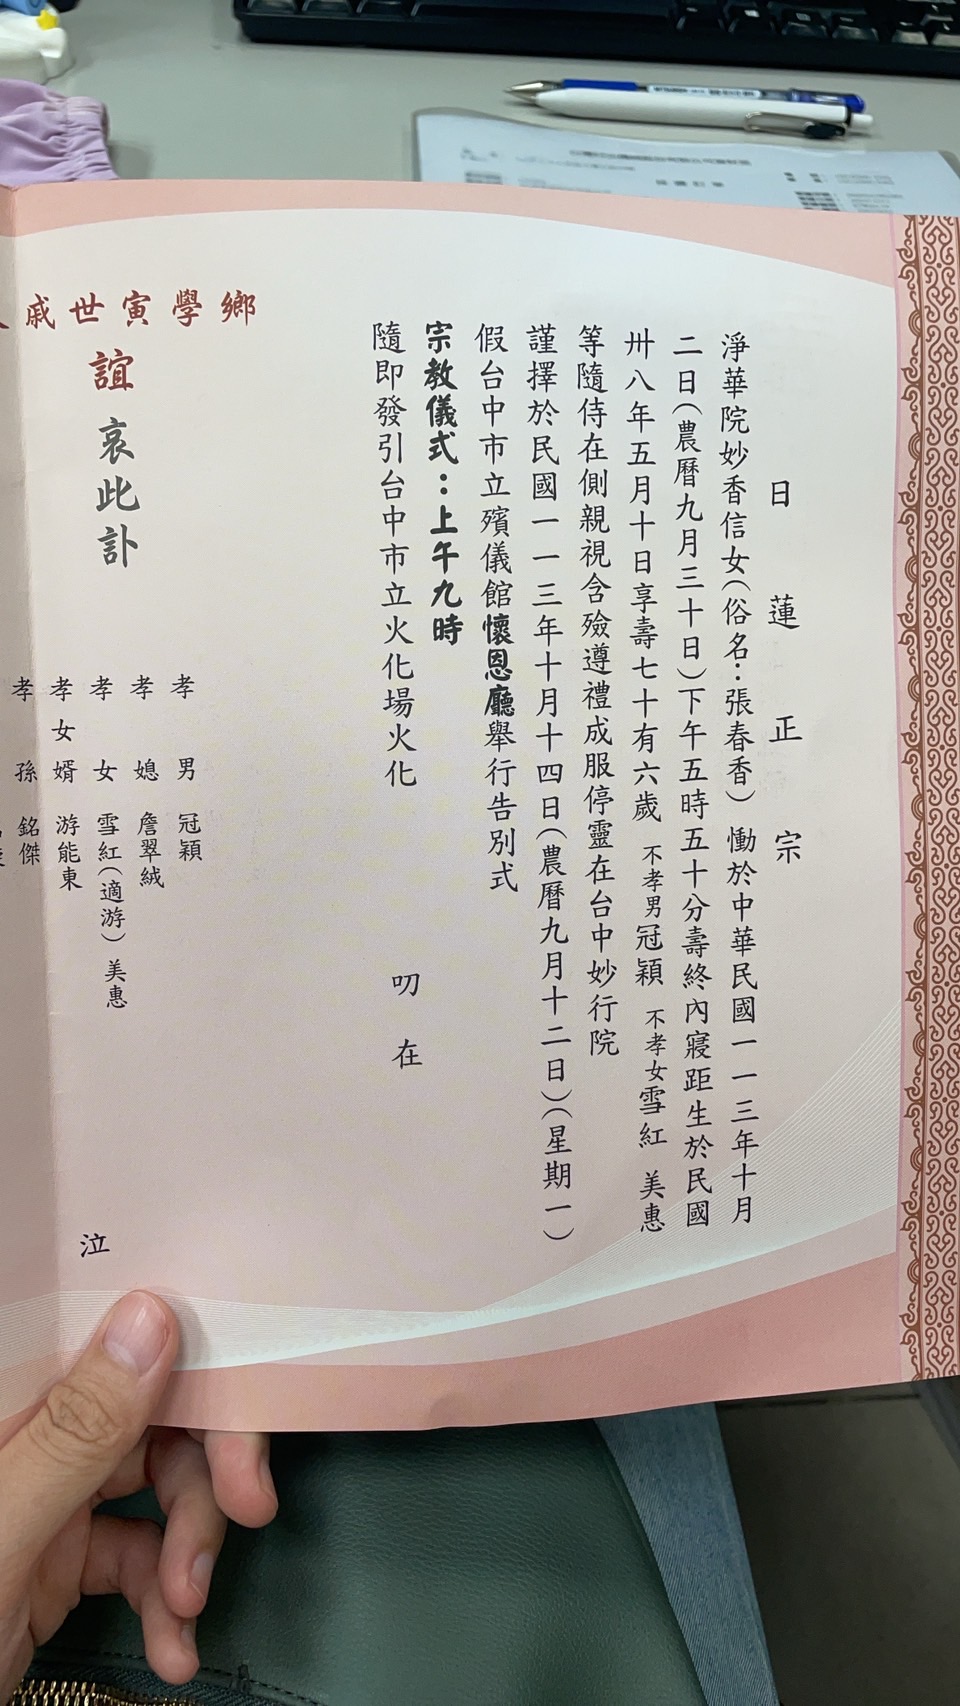 日蓮正宗
淨華院妙香信女(俗名:張春香) 慟於中華民國一一三年十月
二日(農曆九月三十日)下午五時五十分壽終內寢距生於民國
卅八年五月十日享壽七十有六歲 不孝男冠穎 不孝女雪紅 美惠
等隨侍在側親視含殮遵禮成服停靈在台中妙行院
謹擇於民國一一三年十月十四日(農曆九月十二日)(星期一)
假台中市立殯儀館懷恩廳舉行告別式
宗教儀式:上午九時
隨即發引台中市立火化場火化
叨在
鄉學寅世戚
誼哀此訃
孝男 冠穎
孝媳 詹翠絨
孝女 雪紅(適游) 美惠
孝女婿 游能東
孝孫 銘傑
泣